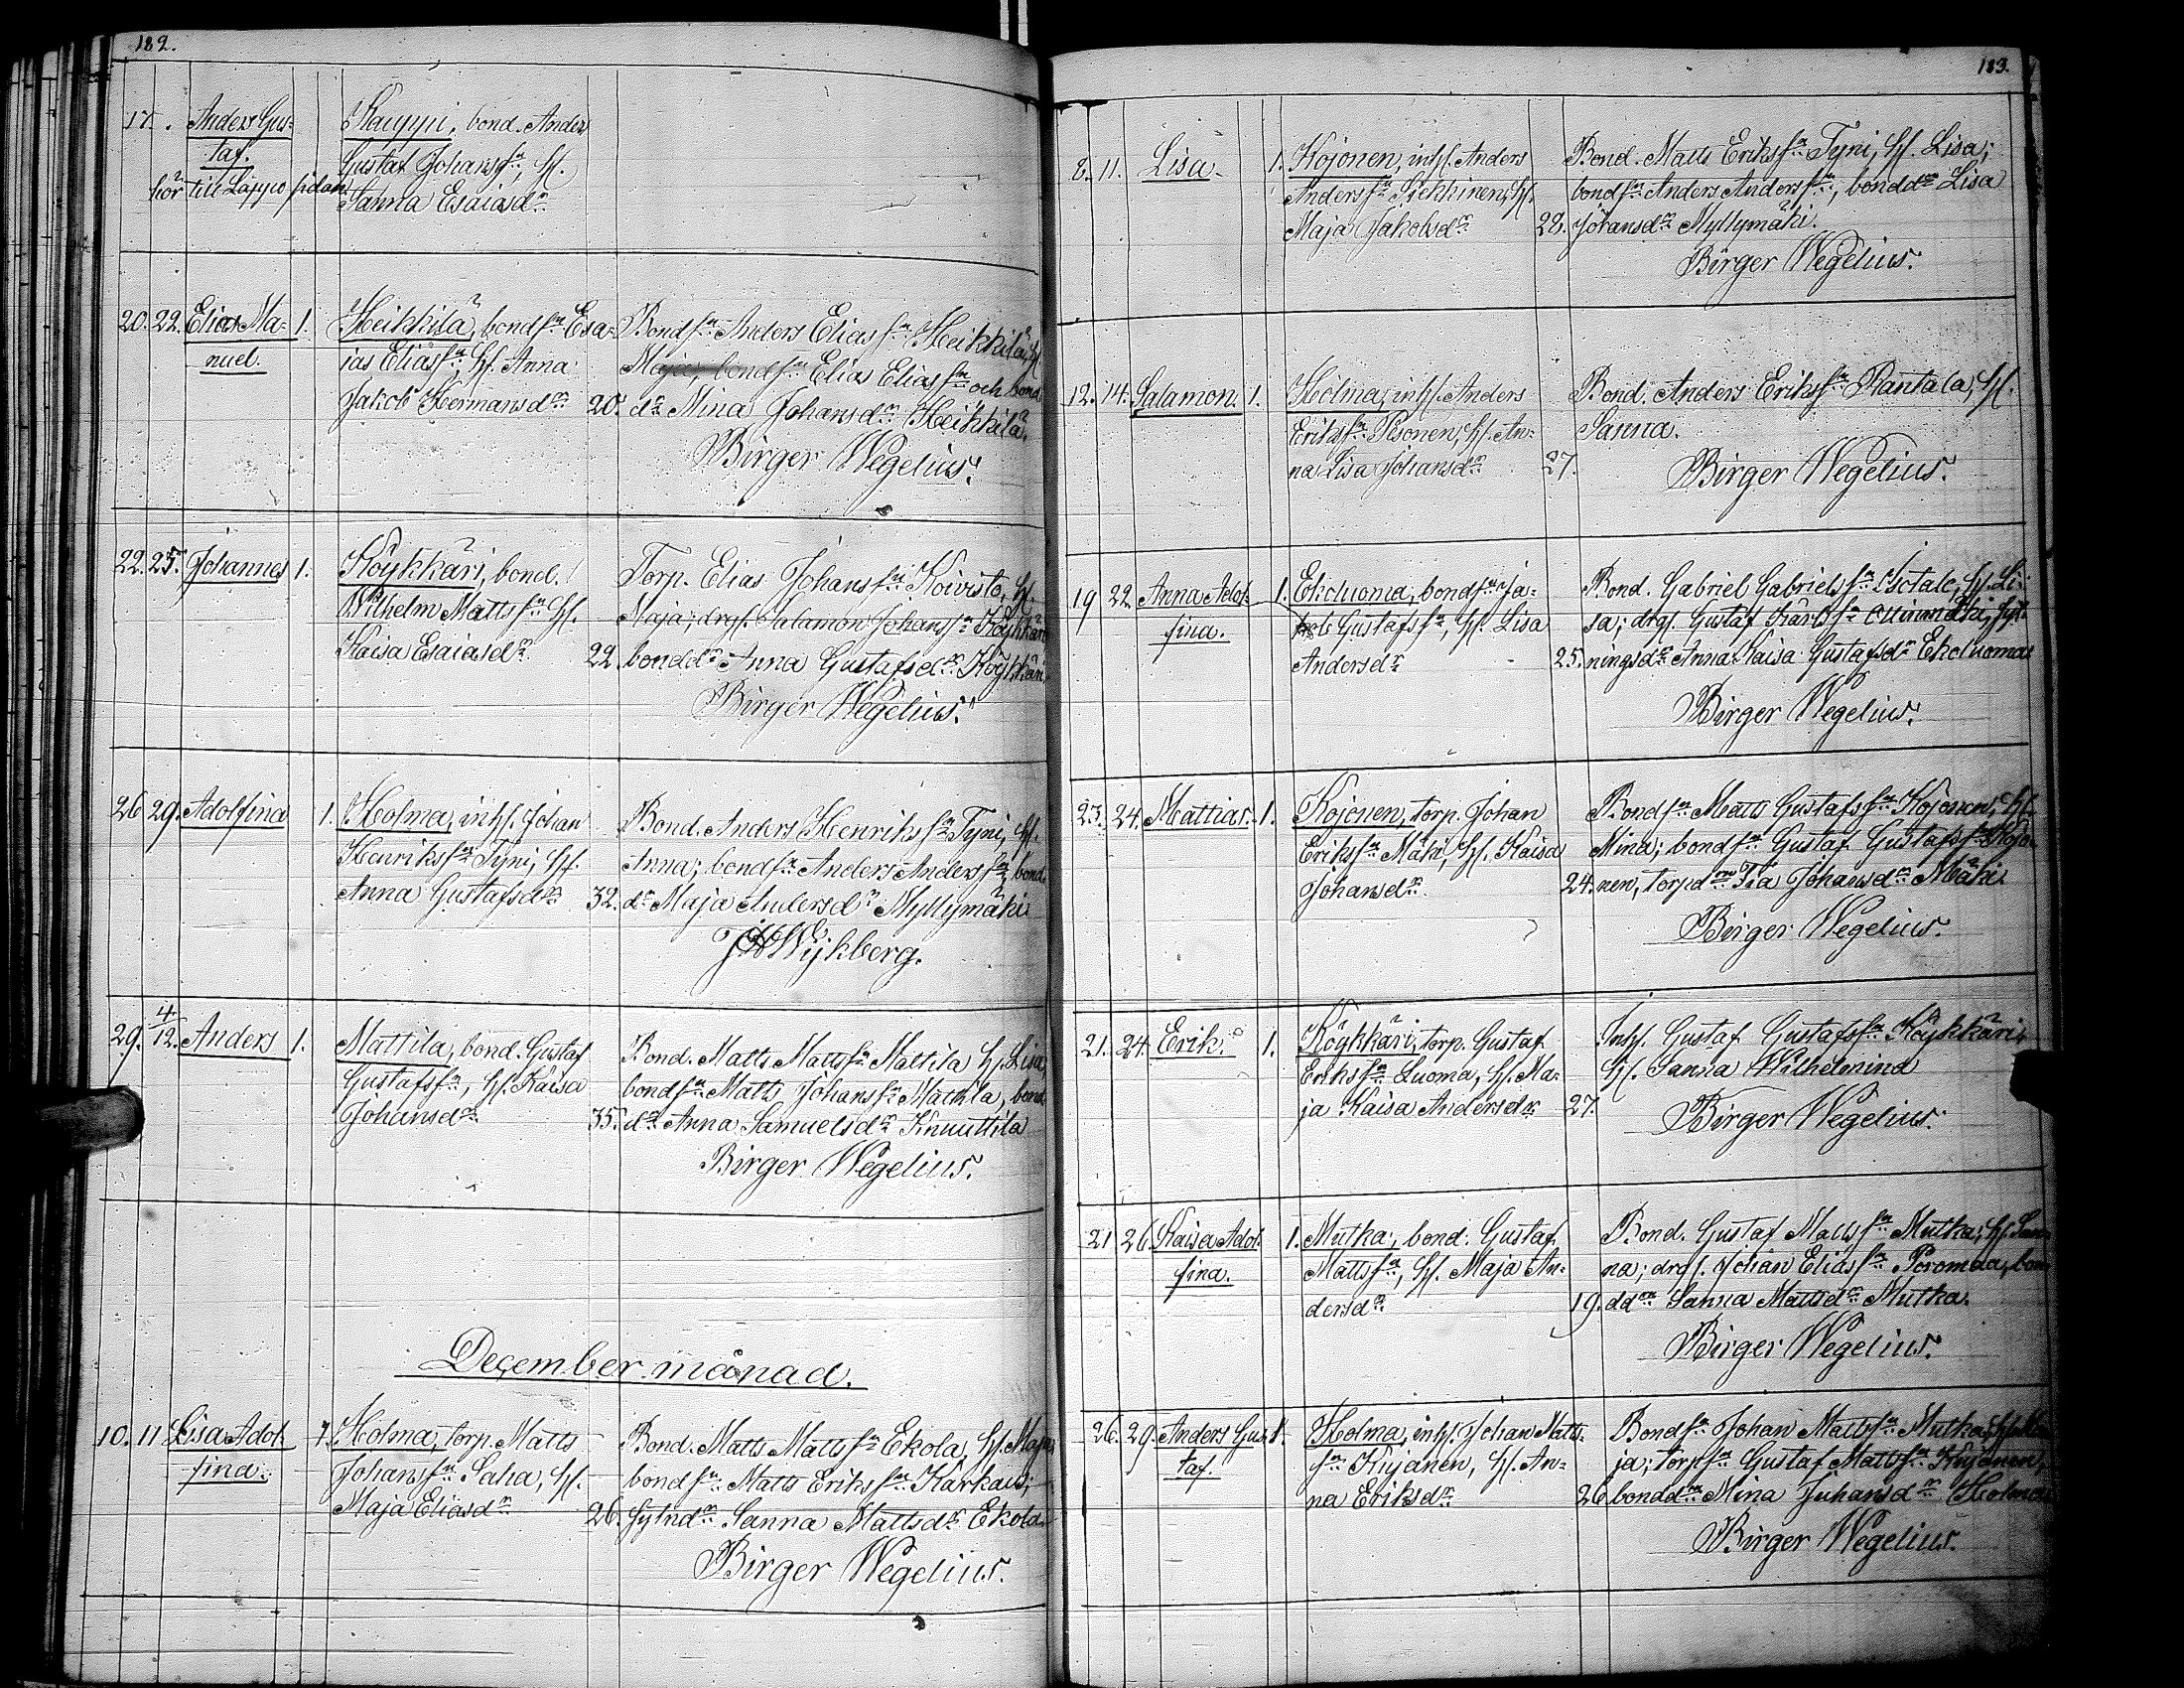 182.
17. Anders Gus-
taf.
hör till Lappo sidan
Kauppi, bond. Anders
Gustaf Johanssn, hst.
Sanna Esaiasdr
20. 22. Elias Ma-
nuel. 1.
Heikkilä, bondsn Esa-
ias Eliassn, H. Anna
Jakob Hermansdr 20.
Bondsn Anders Eliassn Heikkilä, H.
Maja, bondsn Elias Eliassn och bond
dr Mina Johansdr Heikkilä.
Birger Wegelius.
22. 25. Johannes 1.
Köykkäri, bond.
Wilhelm Mattssn H.
Kaisa Esaiasdr 22.
Torp. Elias Johanssn Koivisto, H.
Maja; drg. Salamon Johanssn Köykkäri
bonddr Anna Gustafsdr Köykkäri
Birger Wegelius.
26 29. Adolfina 1.
Holma, inh. Johan
Henrikssn Tyni, H.
Anna Gustafsdr 32.
Bond. Anders Henrikssn Tyni, H.
Anna; bondsn Anders Anderssn, bond.
dr Maja Andersdr Myllymäki
JH Wijkberg.
29. 4/12. Anders 1.
Mattila, bond. Gustaf
Gustafssn, H. Kaisa
Johansdr 35.
Bond. Matts Mattssn Mattila H. Lisa,
bondsn Matts Johanssn Mattila, bond.
dr Anna Samuelsdr Knuuttila
Birger Wegelius.
December månad.
10. 11 Lisa Adol-
fina. 1.
Holma, torp. Matts
Johanssn Saha, H.
Maja Eliasdr 26.
Bond. Matts Mattssn Ekola, H. Maja,
bondsn Matts Erikssn Karhais,
sytndr Sanna Mattsdr Ekola
Birger Wegelius.
183.
8. 11. Lisa 1.
Kojonen, inh. Anders
Anderssn Sikkinen, H.
Maja Jakobsdr 22.
Bond. Matts Erikssn Tyni, H. Lisa;
bondsn Anders Anderssn, bonddr Lisa
Johansdr Myllymäki.
Birger Wegelius.
12. 14. Salamon. 1.
Holma, inh. Anders
Erikssn Pesonen, H. An-
na Lisa Johansdr 27.
Bond. Anders Erikssn Rantala, H.
Sanna.
Birger Wegelius.
19 22 Anna Adol-
fina. 1.
Ekoluoma, bondsn Ja-
kob Gustafssn, H. Lisa
Andersdr 25.
Bond. Gabriel Gabrielssn Isotalo, H. Li-
sa; drg. Gustaf Karlssn Alinmäki, syt-
ningsdr Anna Kaisa Gustafsdr Ekoluoma
Birger Wegelius.
23. 24. Mattias. 1.
Kojonen, torp. Johan
Erikssn Mäki, H. Kaisa
Johansdr 24.
Bondsn Matts Gustafssn Kojonen, H.
Mina; bondsn Gustaf Gustafssn Kojo-
nen, torpdrn Fia Johansdr Mäki
Birger Wegelius.
21. 24. Erik. 1.
Köykkäri, torp. Gustaf
Erikssn Luoma, H. Ma-
ja Kaisa Andersdr 27.
Inh. Gustaf Gustafssn Köykkäri,
H. Sanna Wilhelmina
Birger Wegelius.
21 26. Kaisa Adol-
fina. 1.
Mutka, bond. Gustaf
Mattssn, H. Maja An-
dersdr 19.
Bond. Gustaf Mattssn Mutka, H. San-
na; drg. Johan Eliassn Poromaa, bon
ddrn Sanna Mattsdr Mutka.
Birger Wegelius.
26. 29. Anders Gus-
taf. 1.
Holma, inh. Johan Matts-
sn Kujanen, H. An-
na Eriksdr 26
Bondsn Johan Mattssn Mutka, H. Ma-
ja; torpsn Gustaf Mattssn Kujanen,
bonddrn Mina Juhansdr Holma
Birger Wegelius.